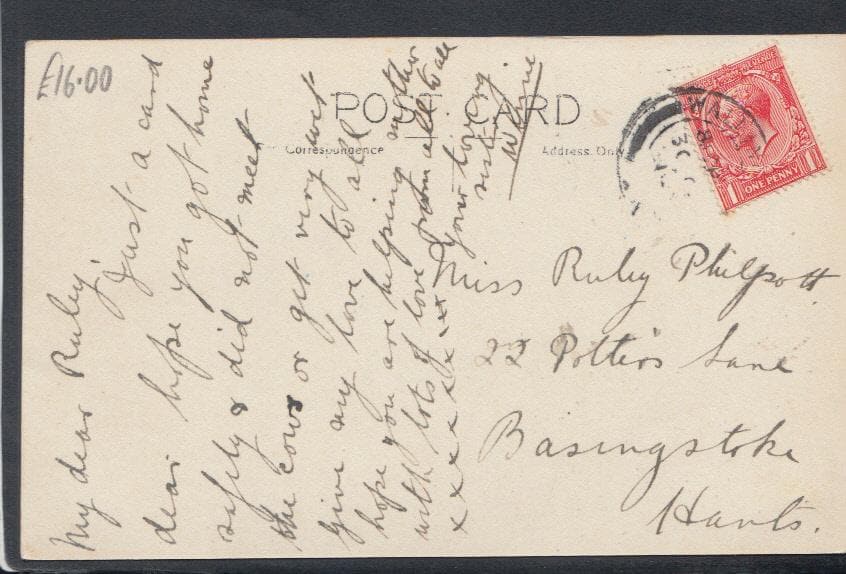 £16.00
POST CARD
Correspondence
Address Only
My dear Ruby,
Just a card
dear hope you got home
safely & did not meet
the cows or get very wet
give my love to all
hope you are helping mother
with lots of love from all to all
x x x x x x x x
Your loving
sister
Winnie
Miss Ruby Philpott
22 Potters Lane
Basingstoke
Hants.
REVENUE
1 ONE PENNY 1